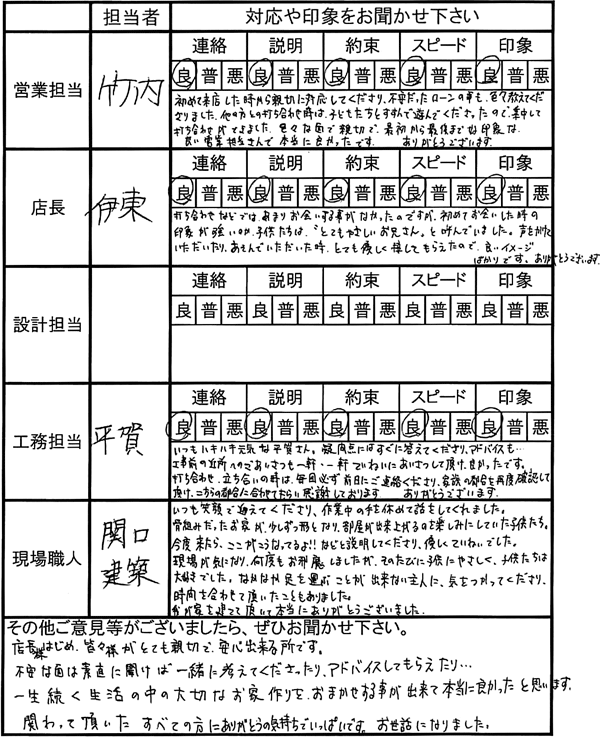 担当者 対応や印象をお聞かせ下さい
営業担当 竹内
連絡 説明 約束 スピード 印象
良 普 悪 良 普 悪 良 普 悪 良 普 悪 良 普 悪
初めて来店した時から親切に対応してくださり、不安だったローンの事も、色々教えてくだ
さりました。他の方との打ち合わせ時は、子どもたちとすすんで遊んでくださったので、集中して
打ち合わせができました。色々な面で親切で、最初から最後まで好印象な、
良い営業担当さんで本当に良かったです。 ありがとうございます。
店長 伊東
連絡 説明 約束 スピード 印象
良 普 悪 良 普 悪 良 普 悪 良 普 悪 良 普 悪
打ち合わせなどでは、あまりお会いする事がなかったのですが、初めてお会いした時の
印象が強いのか、子供たちは、"とてもやさしいお兄さん。"と呼んでいました。声をかけて
いただいたり、あそんでいただいた時、とても優しく接してもらえたので、良いイメージ
ばかりです。ありがとうございます。
設計担当
連絡 説明 約束 スピード 印象
良 普 悪 良 普 悪 良 普 悪 良 普 悪 良 普 悪
工務担当 平賀
連絡 説明 約束 スピード 印象
良 普 悪 良 普 悪 良 普 悪 良 普 悪 良 普 悪
いつもハキハキ元気な平賀さん。疑問点にはすぐに答えてくださり、アドバイスも…
工事前の近所へのごあいさつも一軒・一軒ていねいにあいさつして頂け、良かったです。
打ち合わせ、立ち合いの時は、毎回必ず前日にご連絡くださり、家族の都合を再度確認して
頂け、こちらの都合に合わせてもらい感謝しております。 ありがとうございます。
現場職人 関口建築
いつも笑顔で迎えてくださり、作業中の手を休めて話をしてくれました。
骨組みだったお家が、少しずつ形となり、部屋が出来上がるのを楽しみにしていた子供たち。
今度来たら、ここがこうなってるよ!!などと説明してくださり、優しくていねいでした。
現場が気になり、何度もお邪魔しましたが、そのたびに子供にやさしく、子供たちは
大好きでした。なかなか足を運ぶことが出来ない主人に、気をつかってくださり、
時間を合わせて頂いたこともありました。
我が家を建てて頂いて本当にありがとうございました。
その他ご意見等がございましたら、ぜひお聞かせ下さい。
店長様はじめ、皆々様がとても親切で、安心出来る所です。
不安な面は素直に聞けば一緒に考えてくださったり、アドバイスしてもらえたり…
一生続く生活の中の大切なお家作りを、おまかせする事が出来て本当に良かったと思います。
関わって頂いたすべての方にありがとうの気持ちでいっぱいです。お世話になりました。